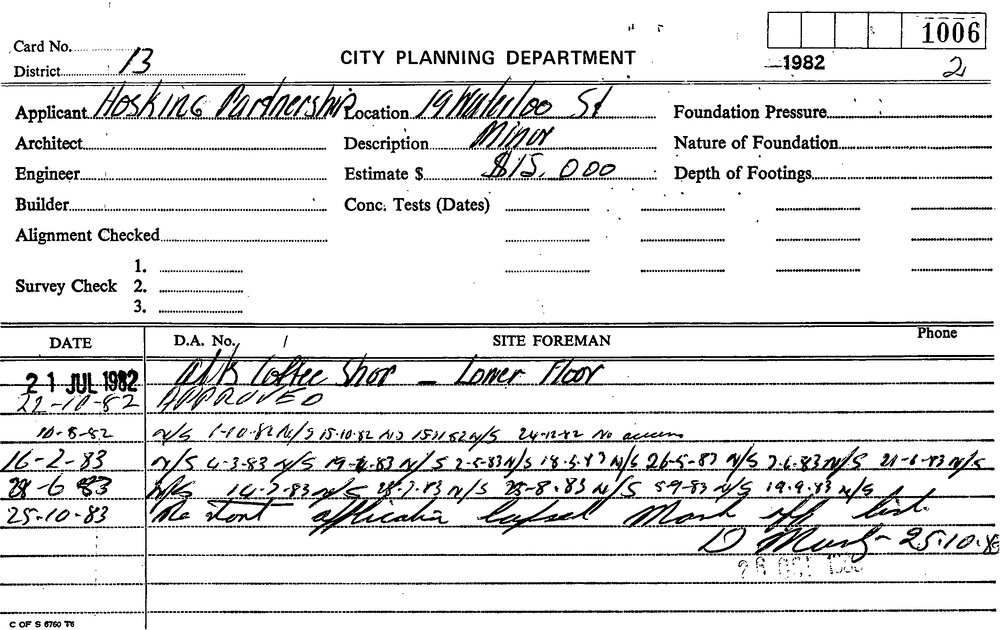 1006
Card No.
District 13
CITY PLANNING DEPARTMENT
1982
2
Applicant Hosking Partnership Location 19 Waterloo St Foundation Pressure
Architect Description Minor Nature of Foundation
Engineer Estimate $ $15,000 Depth of Footings
Builder Conc. Tests (Dates)
Alignment Checked
1.
Survey Check 2.
3.
DATE D.A. No. SITE FOREMAN Phone
21 JUL 1982 Coffee Shop — Lower Floor
22-10-82 APPROVED
10-8-82 N/S 1-10-82 N/S 15-10-82 N/S 15-11-82 N/S 24-12-82 No access
16-2-83 N/S 4-3-83 N/S N/S 2-5-83 N/S 18-5-83 N/S 26-5-83 N/S 21-6-83 N/S
28-6-83 N/S 14-7-83 N/S 28-7-83 N/S 25-8-83 N/S 5-9-83 N/S 19-9-83 N/S
25-10-83 application lapsed Mark off list.
25-10-83
C OF S 6760 T6